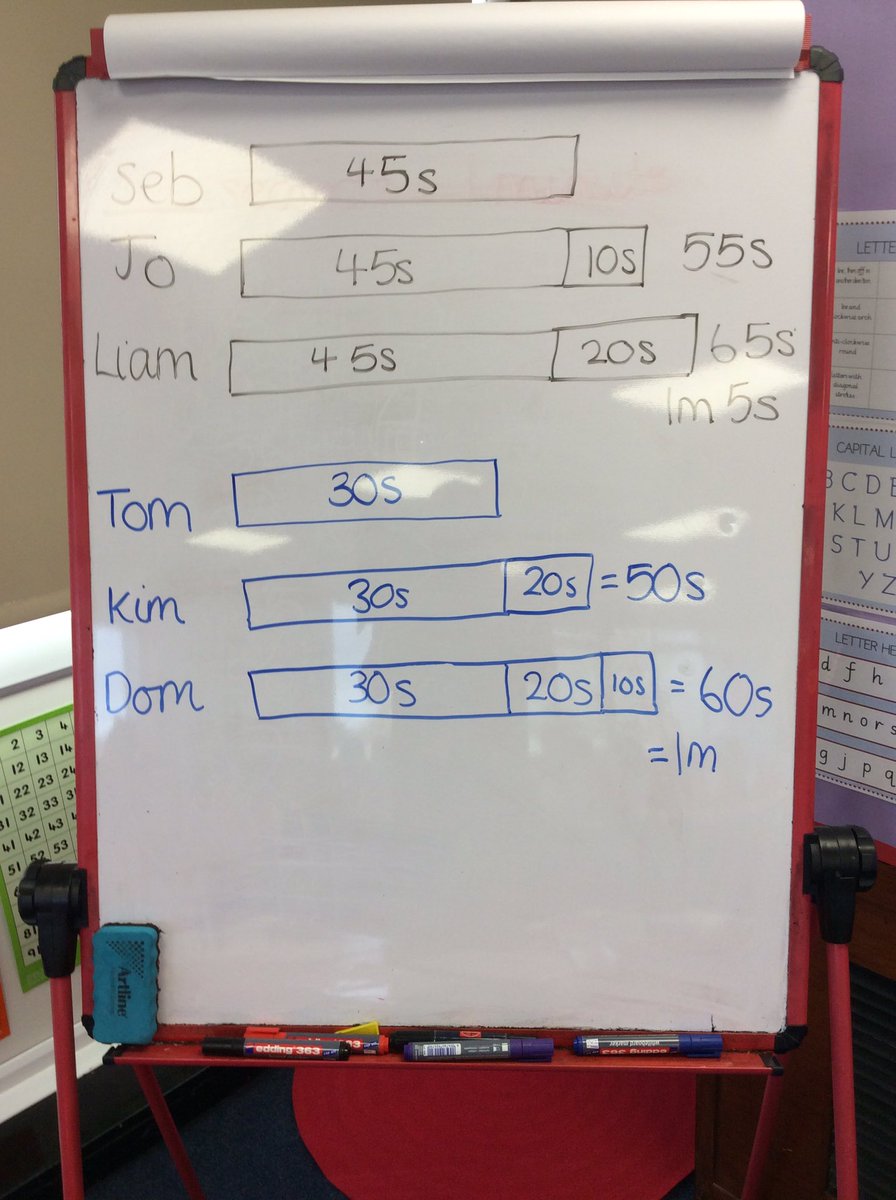 Seb 45s
Jo 45s 10s 55s
Liam 45s 20s 65s
1m 5s
Tom 30s
Kim 30s 20s = 50s
Dom 30s 20s 10s = 60s
= 1m
LETTER
CAPITAL L
B C D E
K L M
S T U
Y Z
LETTER HE
d f h
m n o r s
g j p q
2 3 4
12 13 14
22 23 24
31 32 33
41 42 43
51 52 53
Artline
edding 363